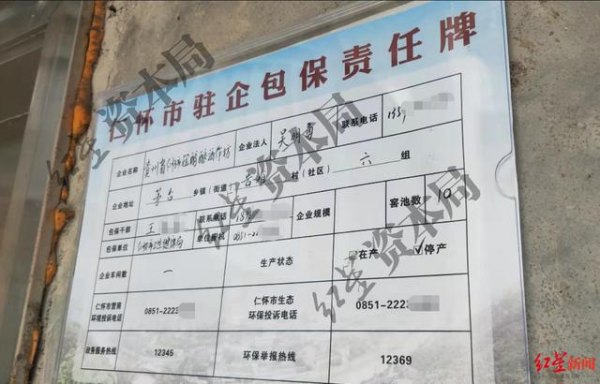 仁怀市驻企包保责任牌
企业名称 贵州省仁怀市 酒坊 企业法人 吴 联系电话 1359
企业地址 茅台 乡镇(街道) 村(社区) 六 组
包保干部 王 联系电话 企业规模 窖池数 10
包保单位 仁怀市 局 单位座机 0851-22
企业车间数 一 生产状态 在产 ☑停产
仁怀市营商环境投诉电话 0851-2223 仁怀市生态环保投诉电话 0851-222
政务服务热线 12345 环保举报热线 12369
红星资本局
红星资本局
红星资本局
红星新闻